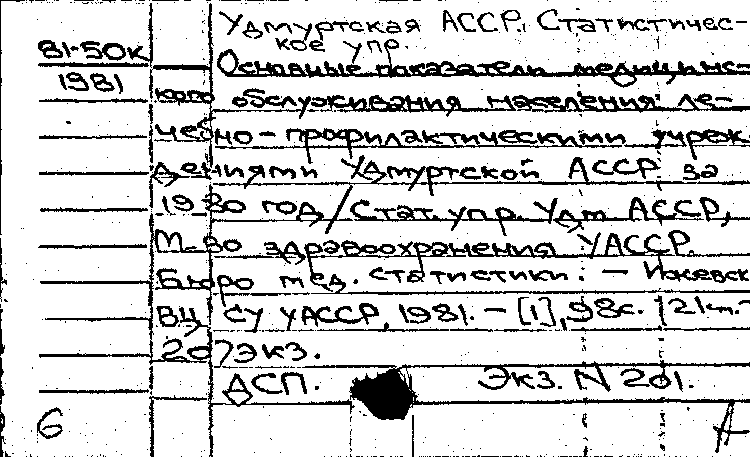 Удмуртская АССР. Статистичес-
кое упр.
81-50к
1981
Основные показатели медицинс-
кого обслуживания населения ле-
чебно-профилактическими учреж-
дениями Удмуртской АССР за
1980 год / Стат. упр. Удм АССР,
М-во здравоохранения УАССР.
Бюро мед. статистики. – Ижевск
ВЦ СУ УАССР, 1981. – [1], 98с. | 21см. –
207экз.
ДСП. Экз. N 201.
6 А